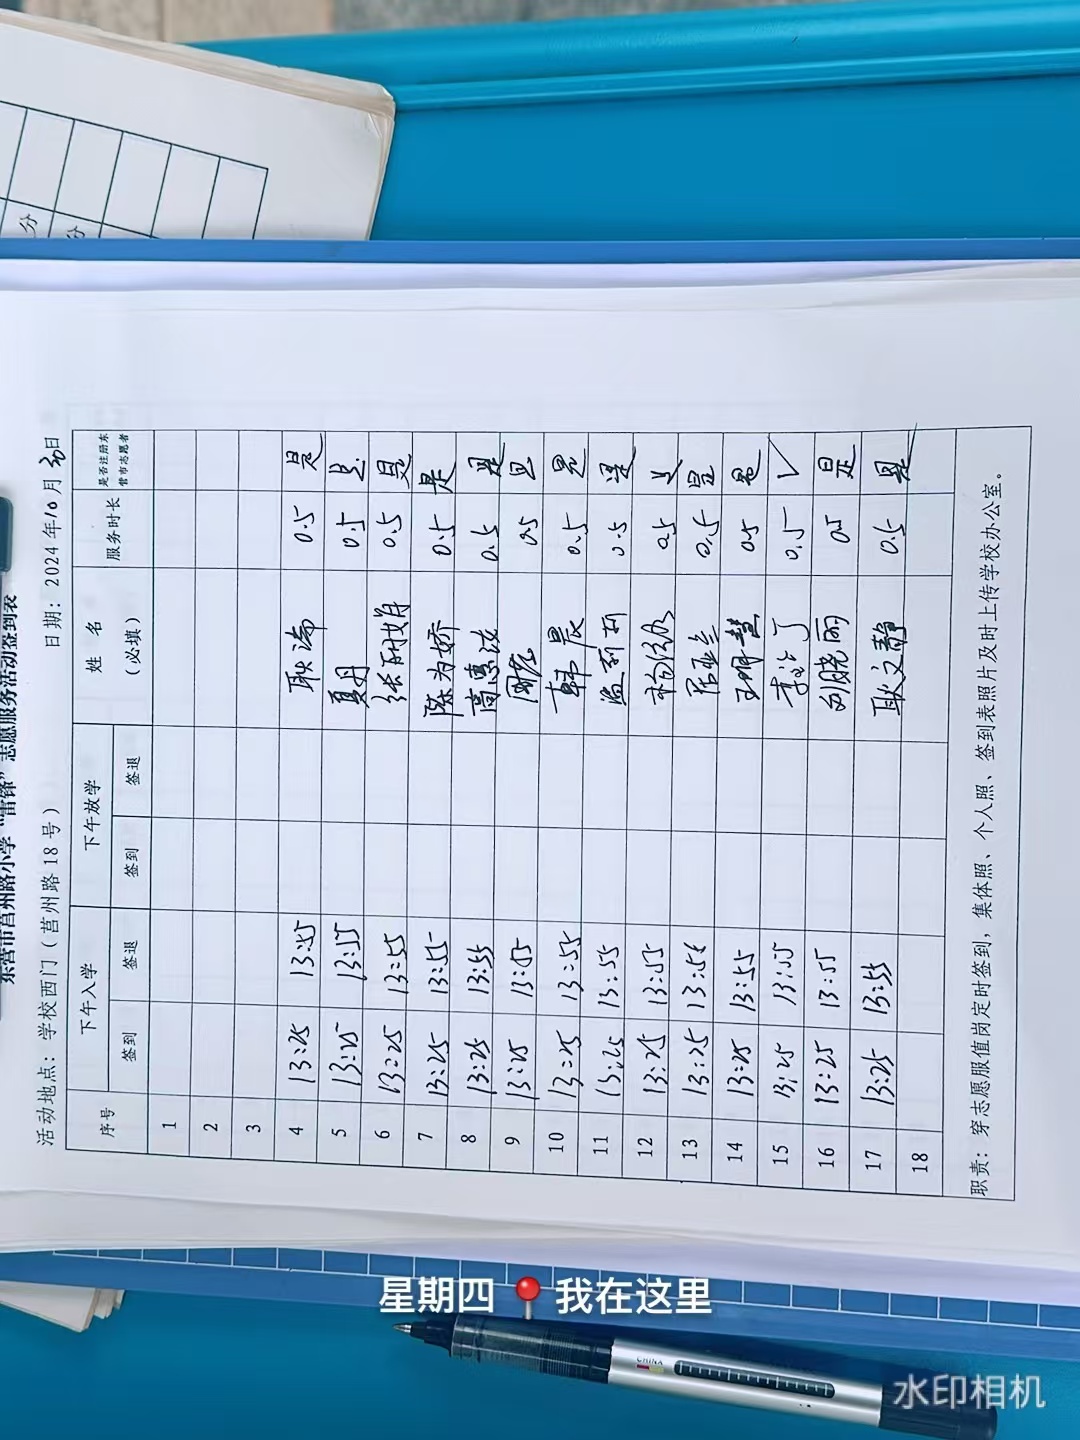 东营市莒州路小学“雷锋”志愿服务活动签到表
活动地点：学校西门（莒州路18号） 日期：2024年10月 日
序号 下午入学 下午放学 姓 名 （必填） 服务时长 是否注册东营市志愿者
签到 签退 签到 签退
1
2
3
4 13:25 13:55 耿 0.5 是
5 13:25 13:55 夏丹 0.5 是
6 13:25 13:55 张 娟 0.5 是
7 13:25 13:55 陈为娇 0.5 是
8 13:25 13:55 高惠 0.5 是
9 13:25 13:55 周 0.5 是
10 13:25 13:55 韩晨 0.5 是
11 13:25 13:55 0.5 是
12 13:25 13:55 0.5
13 13:25 0.5 是
14 13:25 13:55 王明慧 0.5 是
15 13:25 13:55 李 0.5 √
16 13:25 13:55 刘晓丽 0.5 是
17 13:25 13:55 耿文静 0.5 是
18
职责：穿志愿服值岗定时签到，集体照、个人照、签到表照片及时上传学校办公室。
分
分
星期四 📍我在这里
CHINA
水印相机